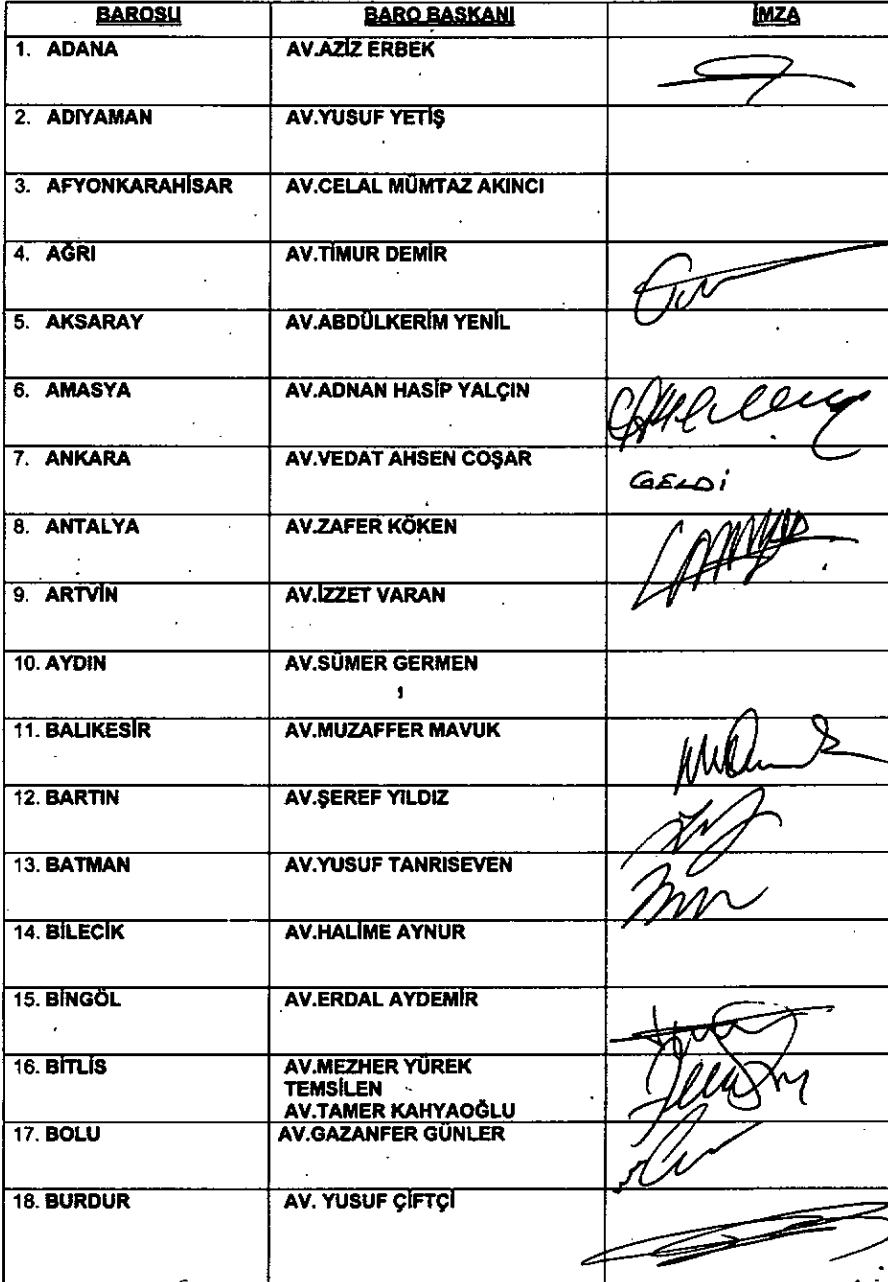 BAROSU BARO BAŞKANI İMZA
1. ADANA AV.AZİZ ERBEK
2. ADIYAMAN AV.YUSUF YETİŞ
3. AFYONKARAHİSAR AV.CELAL MÜMTAZ AKINCI
4. AĞRI AV.TİMUR DEMİR
5. AKSARAY AV.ABDÜLKERİM YENİL
6. AMASYA AV.ADNAN HASİP YALÇIN
7. ANKARA AV.VEDAT AHSEN COŞAR GELDİ
8. ANTALYA AV.ZAFER KÖKEN
9. ARTVİN AV.İZZET VARAN
10. AYDIN AV.SÜMER GERMEN
11. BALIKESİR AV.MUZAFFER MAVUK
12. BARTIN AV.ŞEREF YILDIZ
13. BATMAN AV.YUSUF TANRISEVEN
14. BİLECİK AV.HALİME AYNUR
15. BİNGÖL AV.ERDAL AYDEMİR
16. BİTLİS AV.MEZHER YÜREK
TEMSİLEN
AV.TAMER KAHYAOĞLU
17. BOLU AV.GAZANFER GÜNLER
18. BURDUR AV. YUSUF ÇİFTÇİ